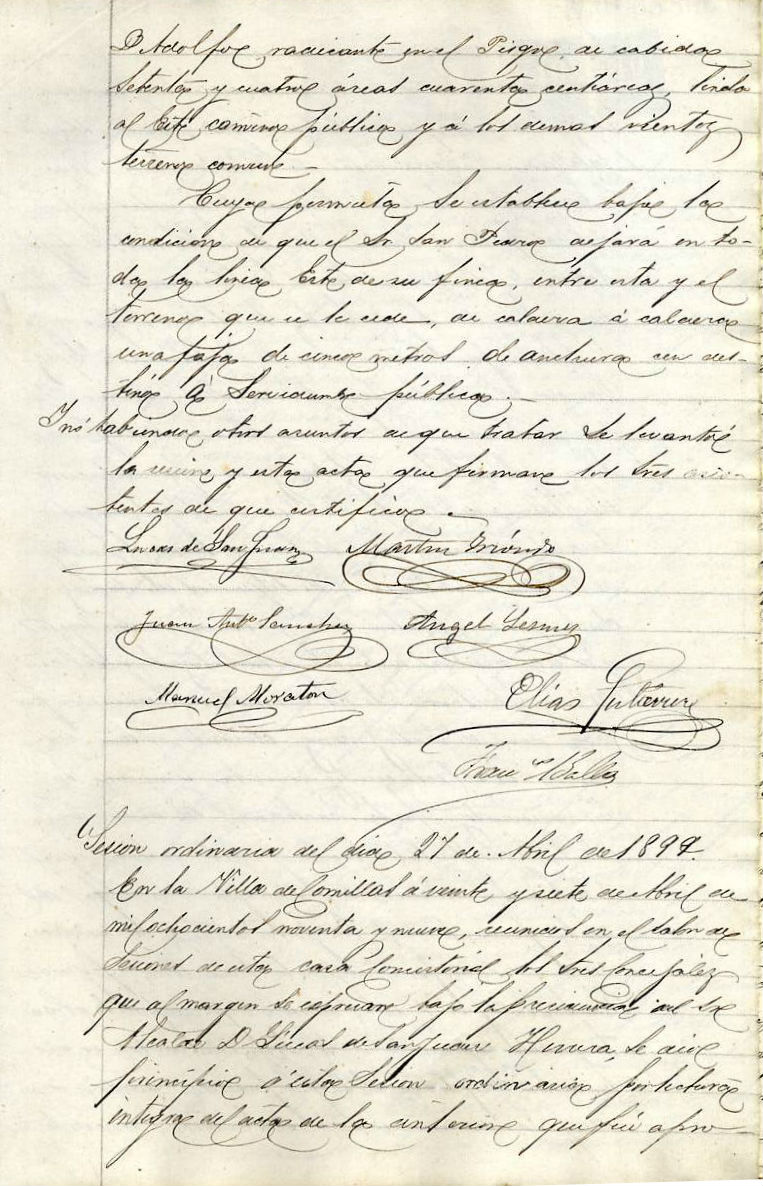 D Adolfo, radicante en el Pisgo, de cabida
setenta y cuatro áreas cuarenta centiáreas, linda
al Este camino público y á los demas vientos
terreno comun.—
Cuya permuta se establece bajo la
condicion de que el Sr. San Pedro dejará en to-
da la linea Este de su finca, entre esta y el
terreno que se le cede, de cabera á cabera
una faja de cinco metros de anchura con des-
tino á servidumbre pública.—
Y no habiendo otros asuntos de que tratar se levantó
la sesion y esta acta que firman los Sres asis-
tentes de que certifico.
Lucas de San Juan Martin Iriondo
Juan Anto Sanchez Angel
Manuel Moraton Elias Gutierrez
Franco
Sesion ordinaria del dia 27 de Abril de 1899.
En la Villa de Comillas á veinte y siete de Abril de
mil ochocientos noventa y nueve, reunidos en el salon de
sesiones de esta casa Consistorial los Sres Concejales
que al margen se espresan bajo la presidencia del Sr
Alcalde D Lucas de San Juan Herrera, se dió
principio á esta sesion ordinaria, por lectura
integra del acta de la anterior que fué apro-